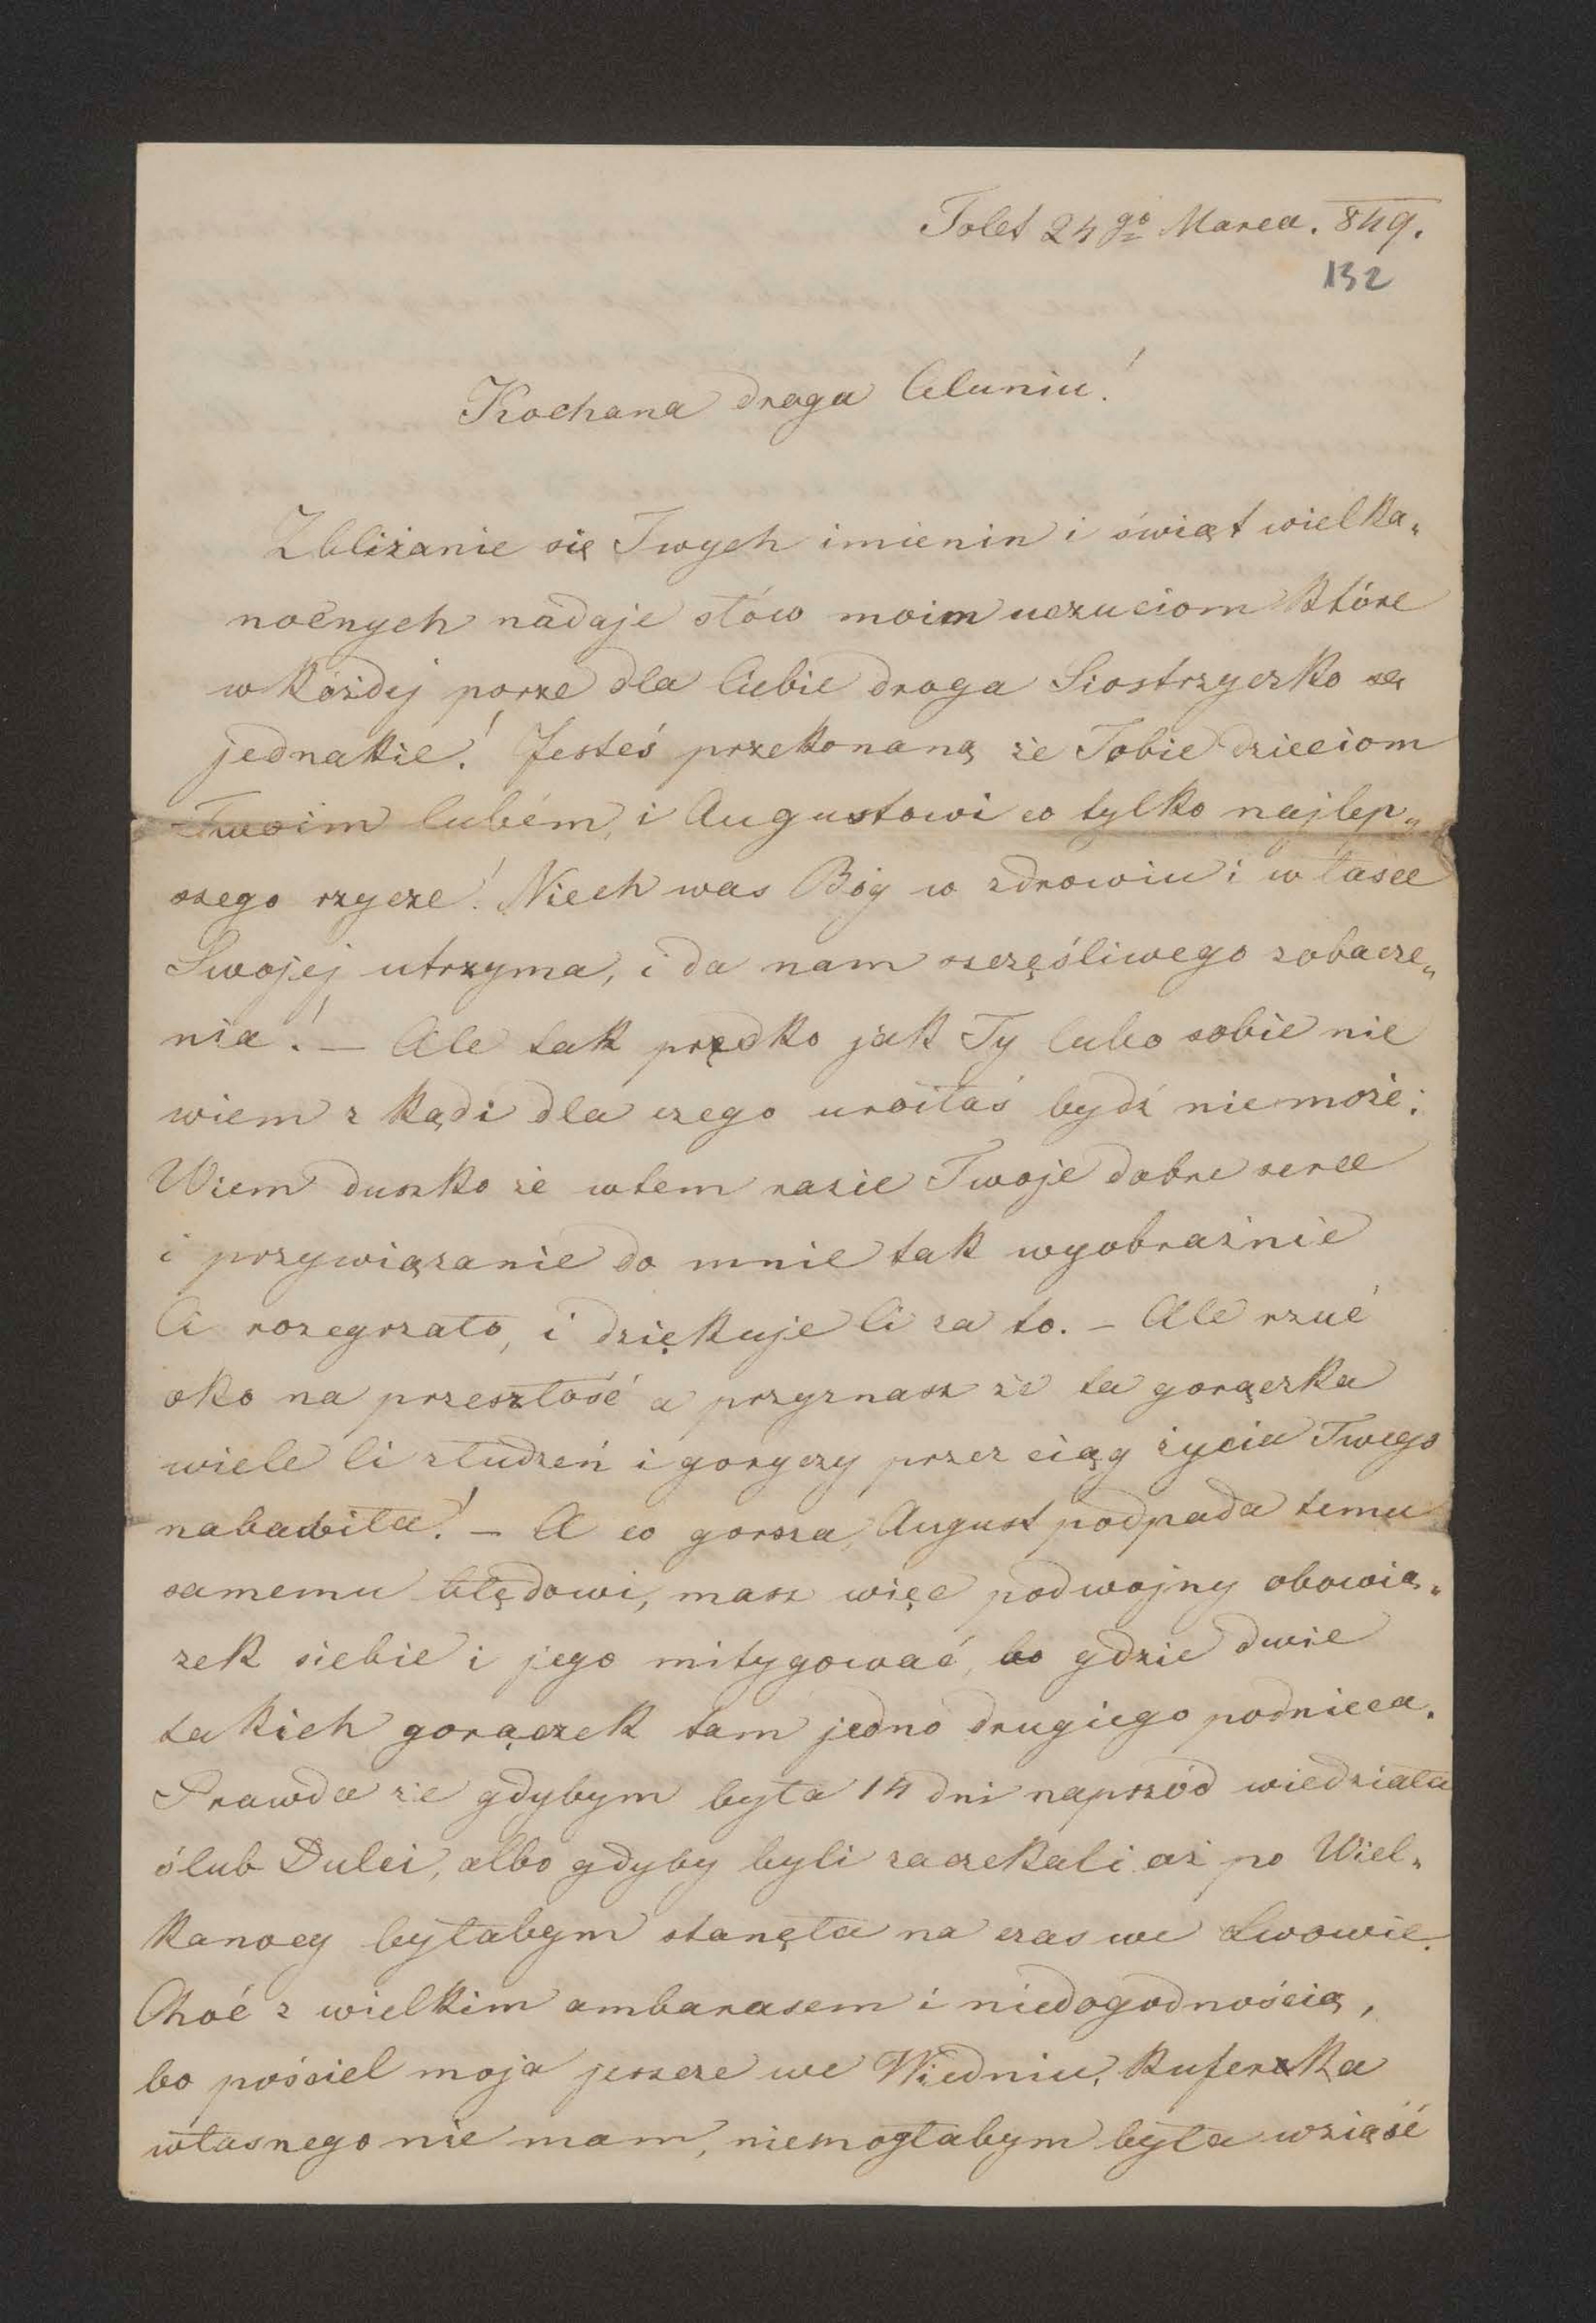 Tolet 24go Marca. 849.
132
Kochana droga Celuniu!
Zbliżanie się Twych imienin i świąt wielka„
nocnych nadaje słów moim uczuciom które
w każdej porze dla Ciebie droga Siostrzyczko są
jednakie! Jesteś przekonaną że Tobie dzieciom
Twoim lubém, i Augustowi co tylko najlep„
szego rzycze! Niech was Bóg w zdrowiu i w łasce
Swojej utrzyma, i da nam szczęśliwego zobacze„
nia! — Ale tak prędko jak Ty lubo sobie nie
wiem z kąd i dla czego uroiłaś bydź niemoże;
Wiem duszko że wtem razie Twoje dobre serce
i przywiązanie do mnie tak wyobraźnie
Ci rozegrzało, i dziękuje Ci za to. — Ale rzuć
oko na przeszłość a przyznasz że ta gorączka
wiele Ci złudzeń i goryczy przez ciąg życia Twego
nabawiła! — A co gorsza, August podpada temu
samemu błędowi, masz więc podwojny obowią„
zek siebie i jego mitygować, bo gdzie dwie
takich gorączek tam jedno drugiego podnieca.
Prawda że gdybym była 14 dni naprzód wiedziała
ślub Dulci, albo gdyby byli zaczekali aż po Wiel„
kanocy byłabym stanęła na czas we Lwowie.
Choć z wielkim ambarasem i niedogodnością,
bo pościel moja jeszcze we Wiedniu, kuferka
własnego nie mam, niemogłabym była wziąść